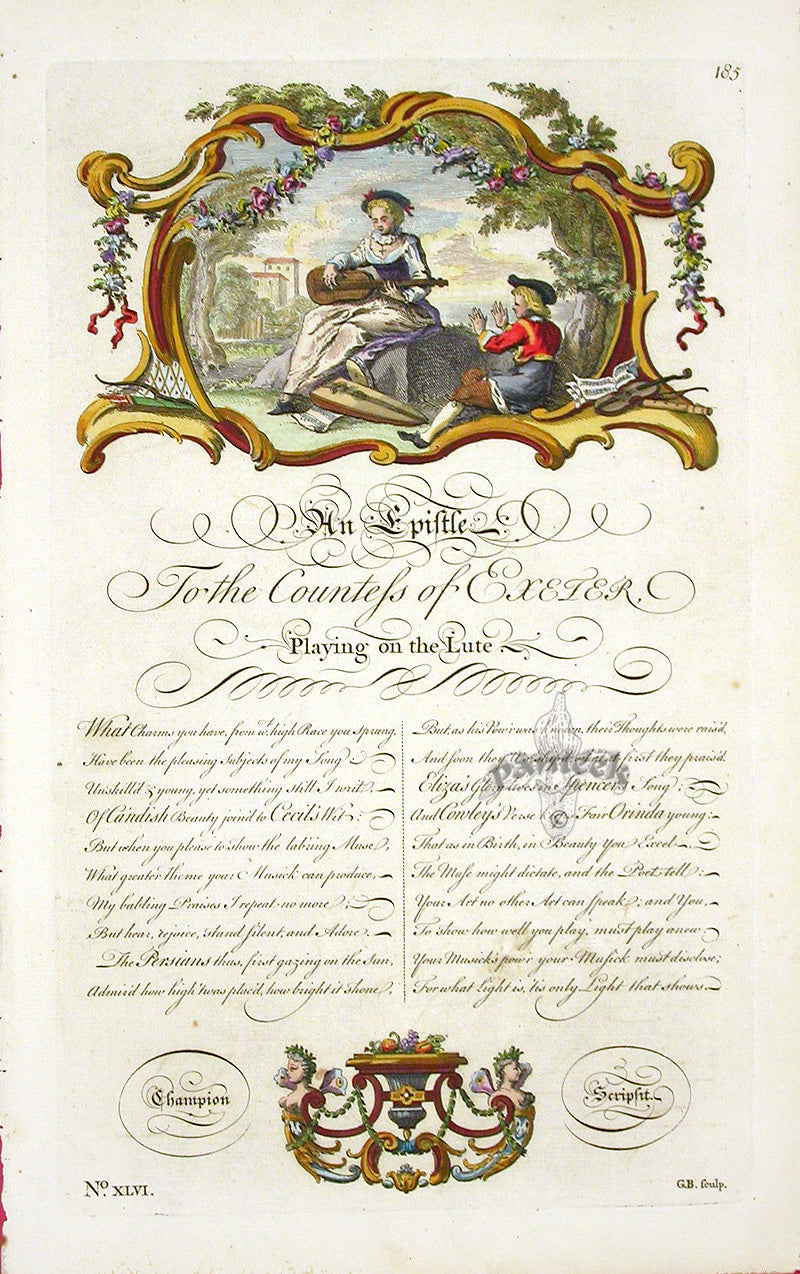 185
An Epistle
To the Countess of EXETER,
Playing on the Lute
What Charms you have, from wt. high Race you sprung,
Have been the pleasing Subjects of my Song:
Unskill'd & young, yet something still I writ,
Of Ca'ndish Beauty join'd to Cecil's Wit:
But when you please to show the lab'ring Muse,
What greater theme your Musick can produce,
My babling Praises I repeat no more,
But hear, rejoice, stand silent, and Adore.
The Persians thus, first gazing on the Sun,
Admir'd how high 'twas plac'd, how bright it shone,
But, as his Pow'r was known, their Thoughts were rais'd,
And soon they worship'd, what at first they prais'd.
Eliza's Glory lives in Spencer's Song;
And Cowley's Verse Fair Orinda young:
That as in Birth, in Beauty You Excel,
The Muse might dictate, and the Poet tell:
Your Art no other Art can speak; and You,
To show how well you play, must play anew
Your Musick's pow'r your Musick must disclose;
For what Light is, 'tis only Light that shows.
Champion
Scripsit.
No. XLVI.
G.B. sculp.
panteek
©